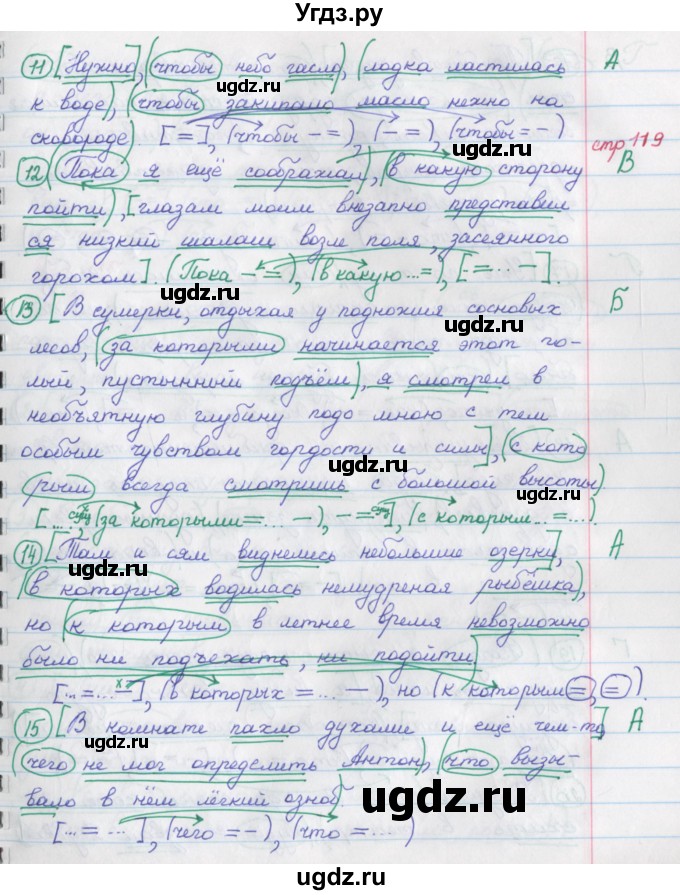 Угдз.ру
11 [Нужно], (чтобы небо гасло), (лодка ластилась А
к воде), (чтобы закипало масло нежно на
сковороде). [=], (чтобы - =), (- =), (чтобы = -)
стр 119
12 (Пока я ещё соображал), (в какую сторону В
пойти), [глазам моим внезапно представил
ся низкий шалаш возле поля, засеянного
горохом]. (Пока - =), (в какую...=), [..=... -].
13 [В сумерки, отдыхая у подножия сосновых Б
лесов, (за которыми начинается этот го-
лый, пустынный подъём), я смотрел в
необъятную глубину подо мною с тем
особым чувством гордости и силы], (с кото
рым всегда смотришь с большой высоты)
[... сущ, (за которыми=... -), -= сущ], (с которым...=...).
14 [Там и сям виднелись небольшие озерки], А
(в которых водилась немудреная рыбёшка),
но (к которым в летнее время невозможно
было ни подъехать, ни подойти)
[..=... х -], (в которых =... -), но (к которым =, =).
15 [В комнате пахло духами и ещё чем-то] А
(чего не мог определить Антон), (что вызы-
вало в нём лёгкий озноб.
[...= ...], (чего = -), (что = ...)
ugdz.ru
ugdz.ru
ugdz.ru
ugdz.ru
ugdz.ru
ugdz.ru
ugdz.ru
ugdz.ru
ugdz.ru
ugdz.ru
ugdz.ru
ugdz.ru